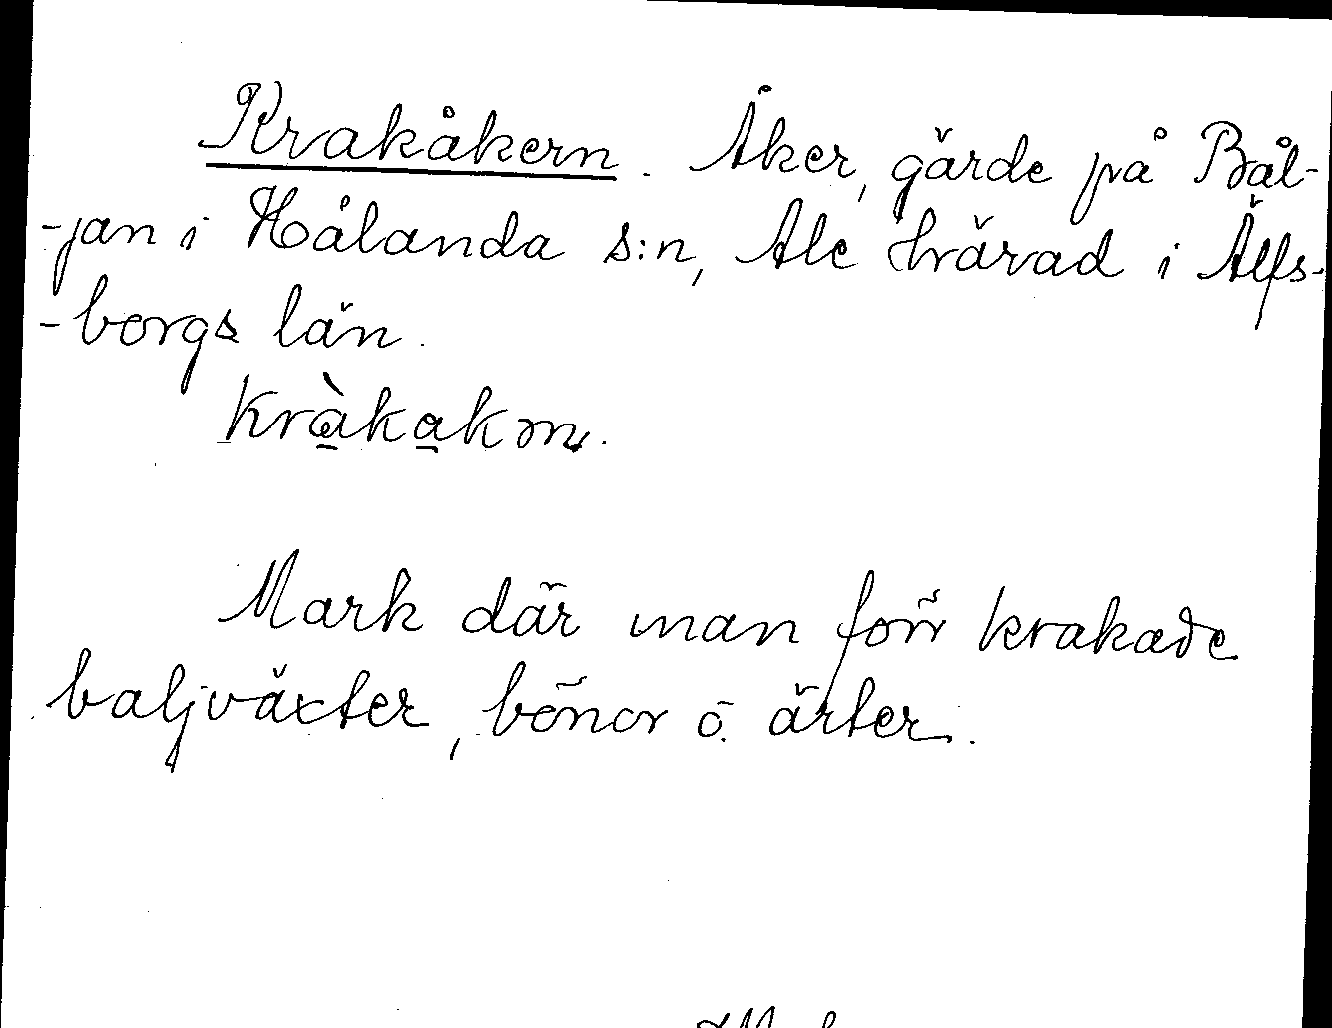 Krakåkern. Åker, gärde på Bål-
-jan i Hålanda s:n, Ale härad i Älfs-
-borgs län.
Kràkakən.
Mark där man förr krakade
baljväxter, bönor o. ärter.